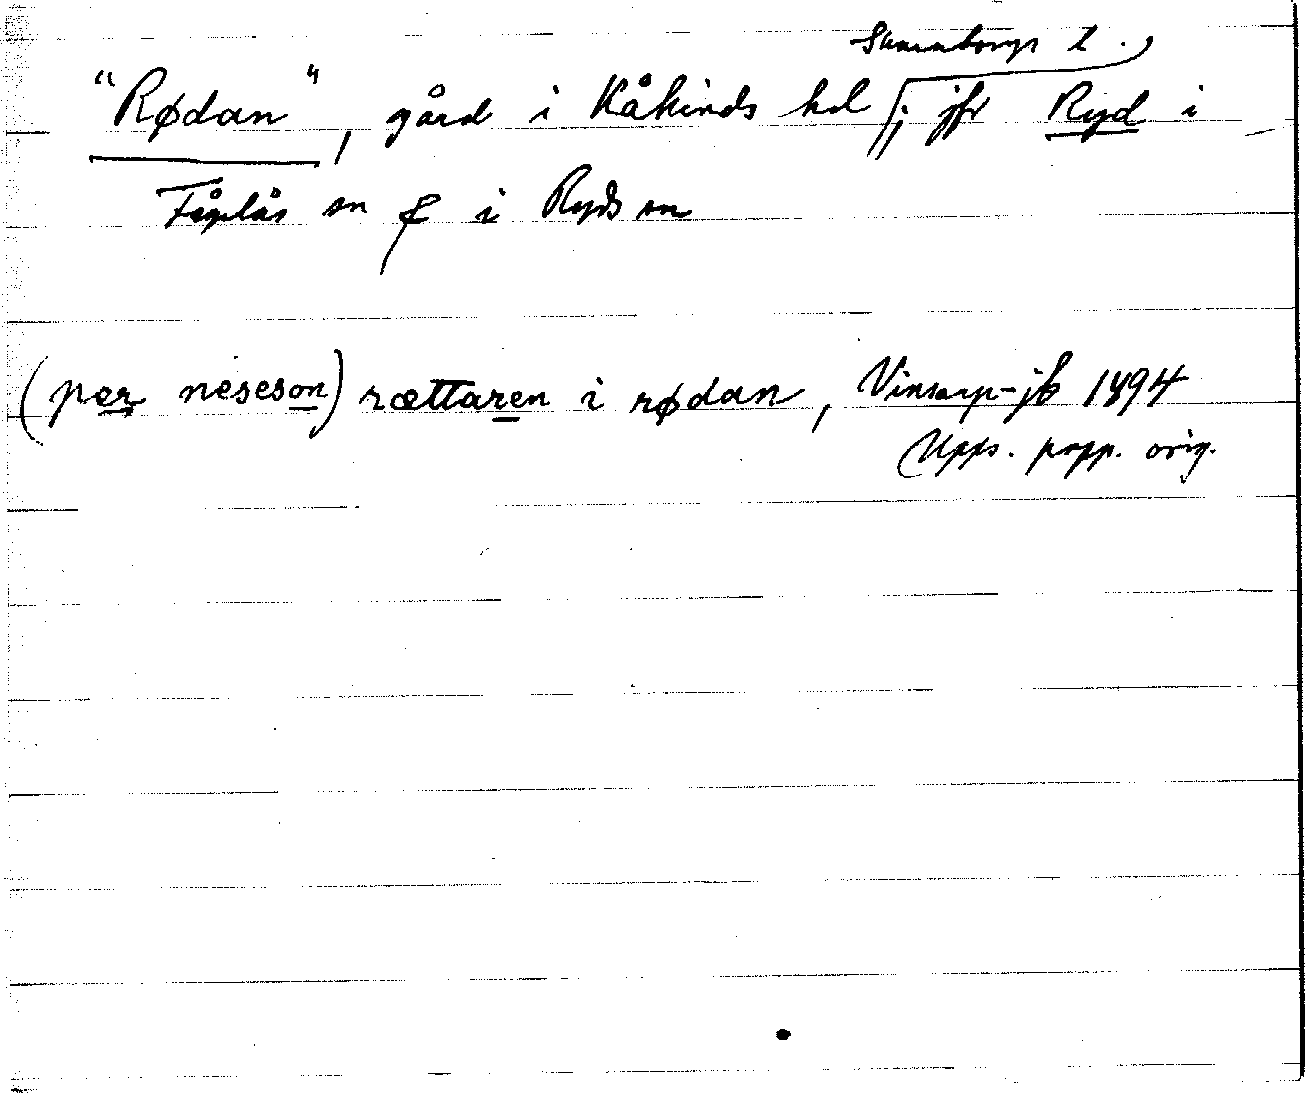 Skaraborgs l.,
"Rødan", gård i Kåkinds hd ; jfr Ryd i
Fågelås sn & i Ryds sn
(per neseson) rættaren i rødan, Vinsarp-jb 1494
Upps. papp. orig.